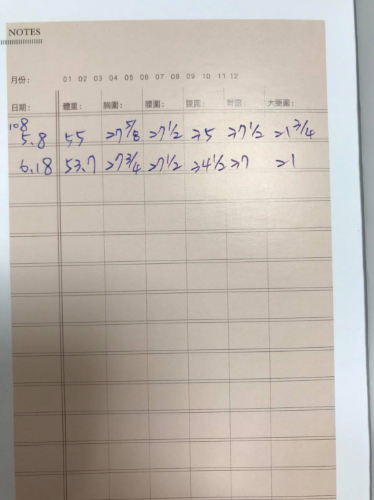 NOTES
月份： 01 02 03 04 05 06 07 08 09 10 11 12
日期： 體重： 胸圍： 腰圍： 腹圍： 臀圍： 大腿圍：
108
5.8 55 27 5/8 27 1/2 35 37 1/2 21 3/4
6.18 53.7 27 3/4 27 1/2 34 1/2 37 21